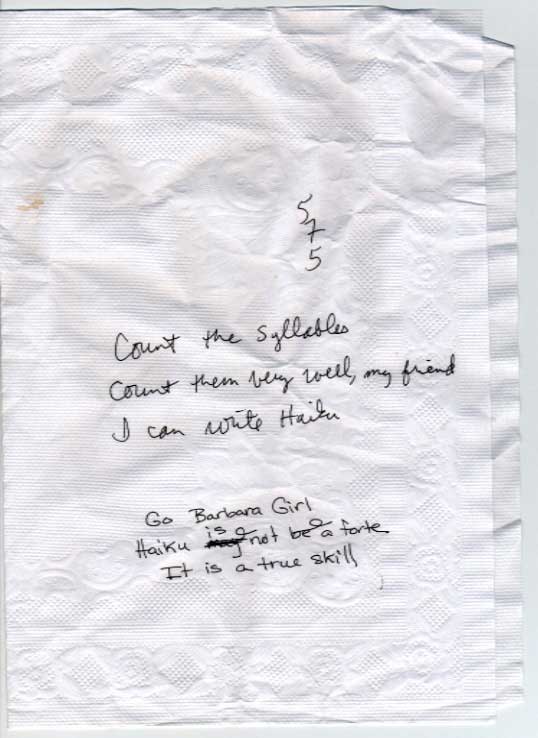 5
7
5
Count the Syllables
Count them very well, my friend
I can write Haiku
Go Barbara Girl
Haiku is not be a forte
It is a true skill